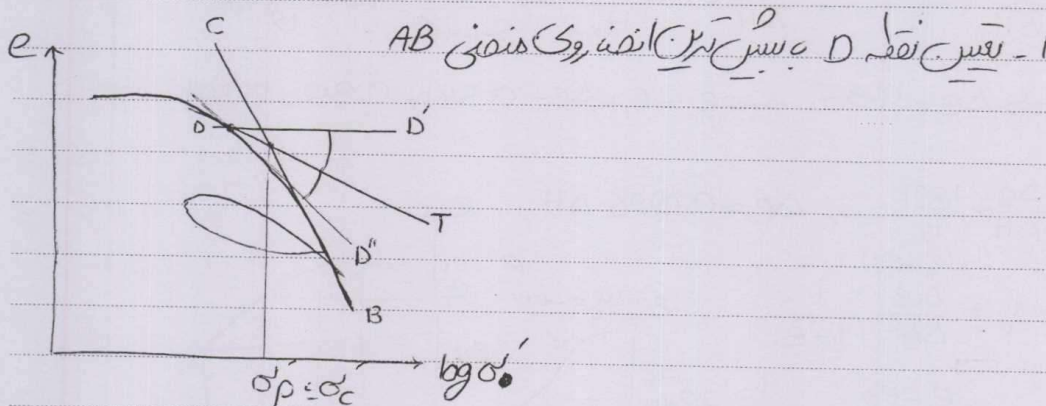 ۱- تعیین نقطه D با بیش‌ترین انحنا روی منحنی AB
C
e
D
D'
T
D"
B
σ'p یا σ'c
log σ'